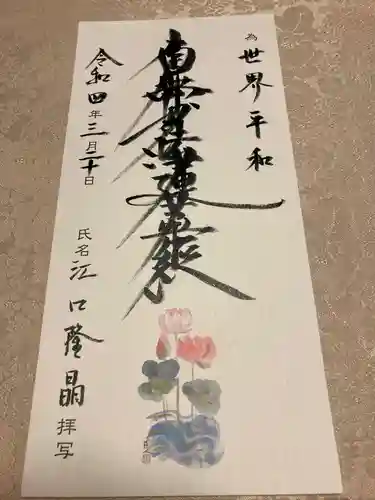 為 世界平和
南無妙法蓮華経
令和四年三月二十日
氏名 江口隆晶 拝写